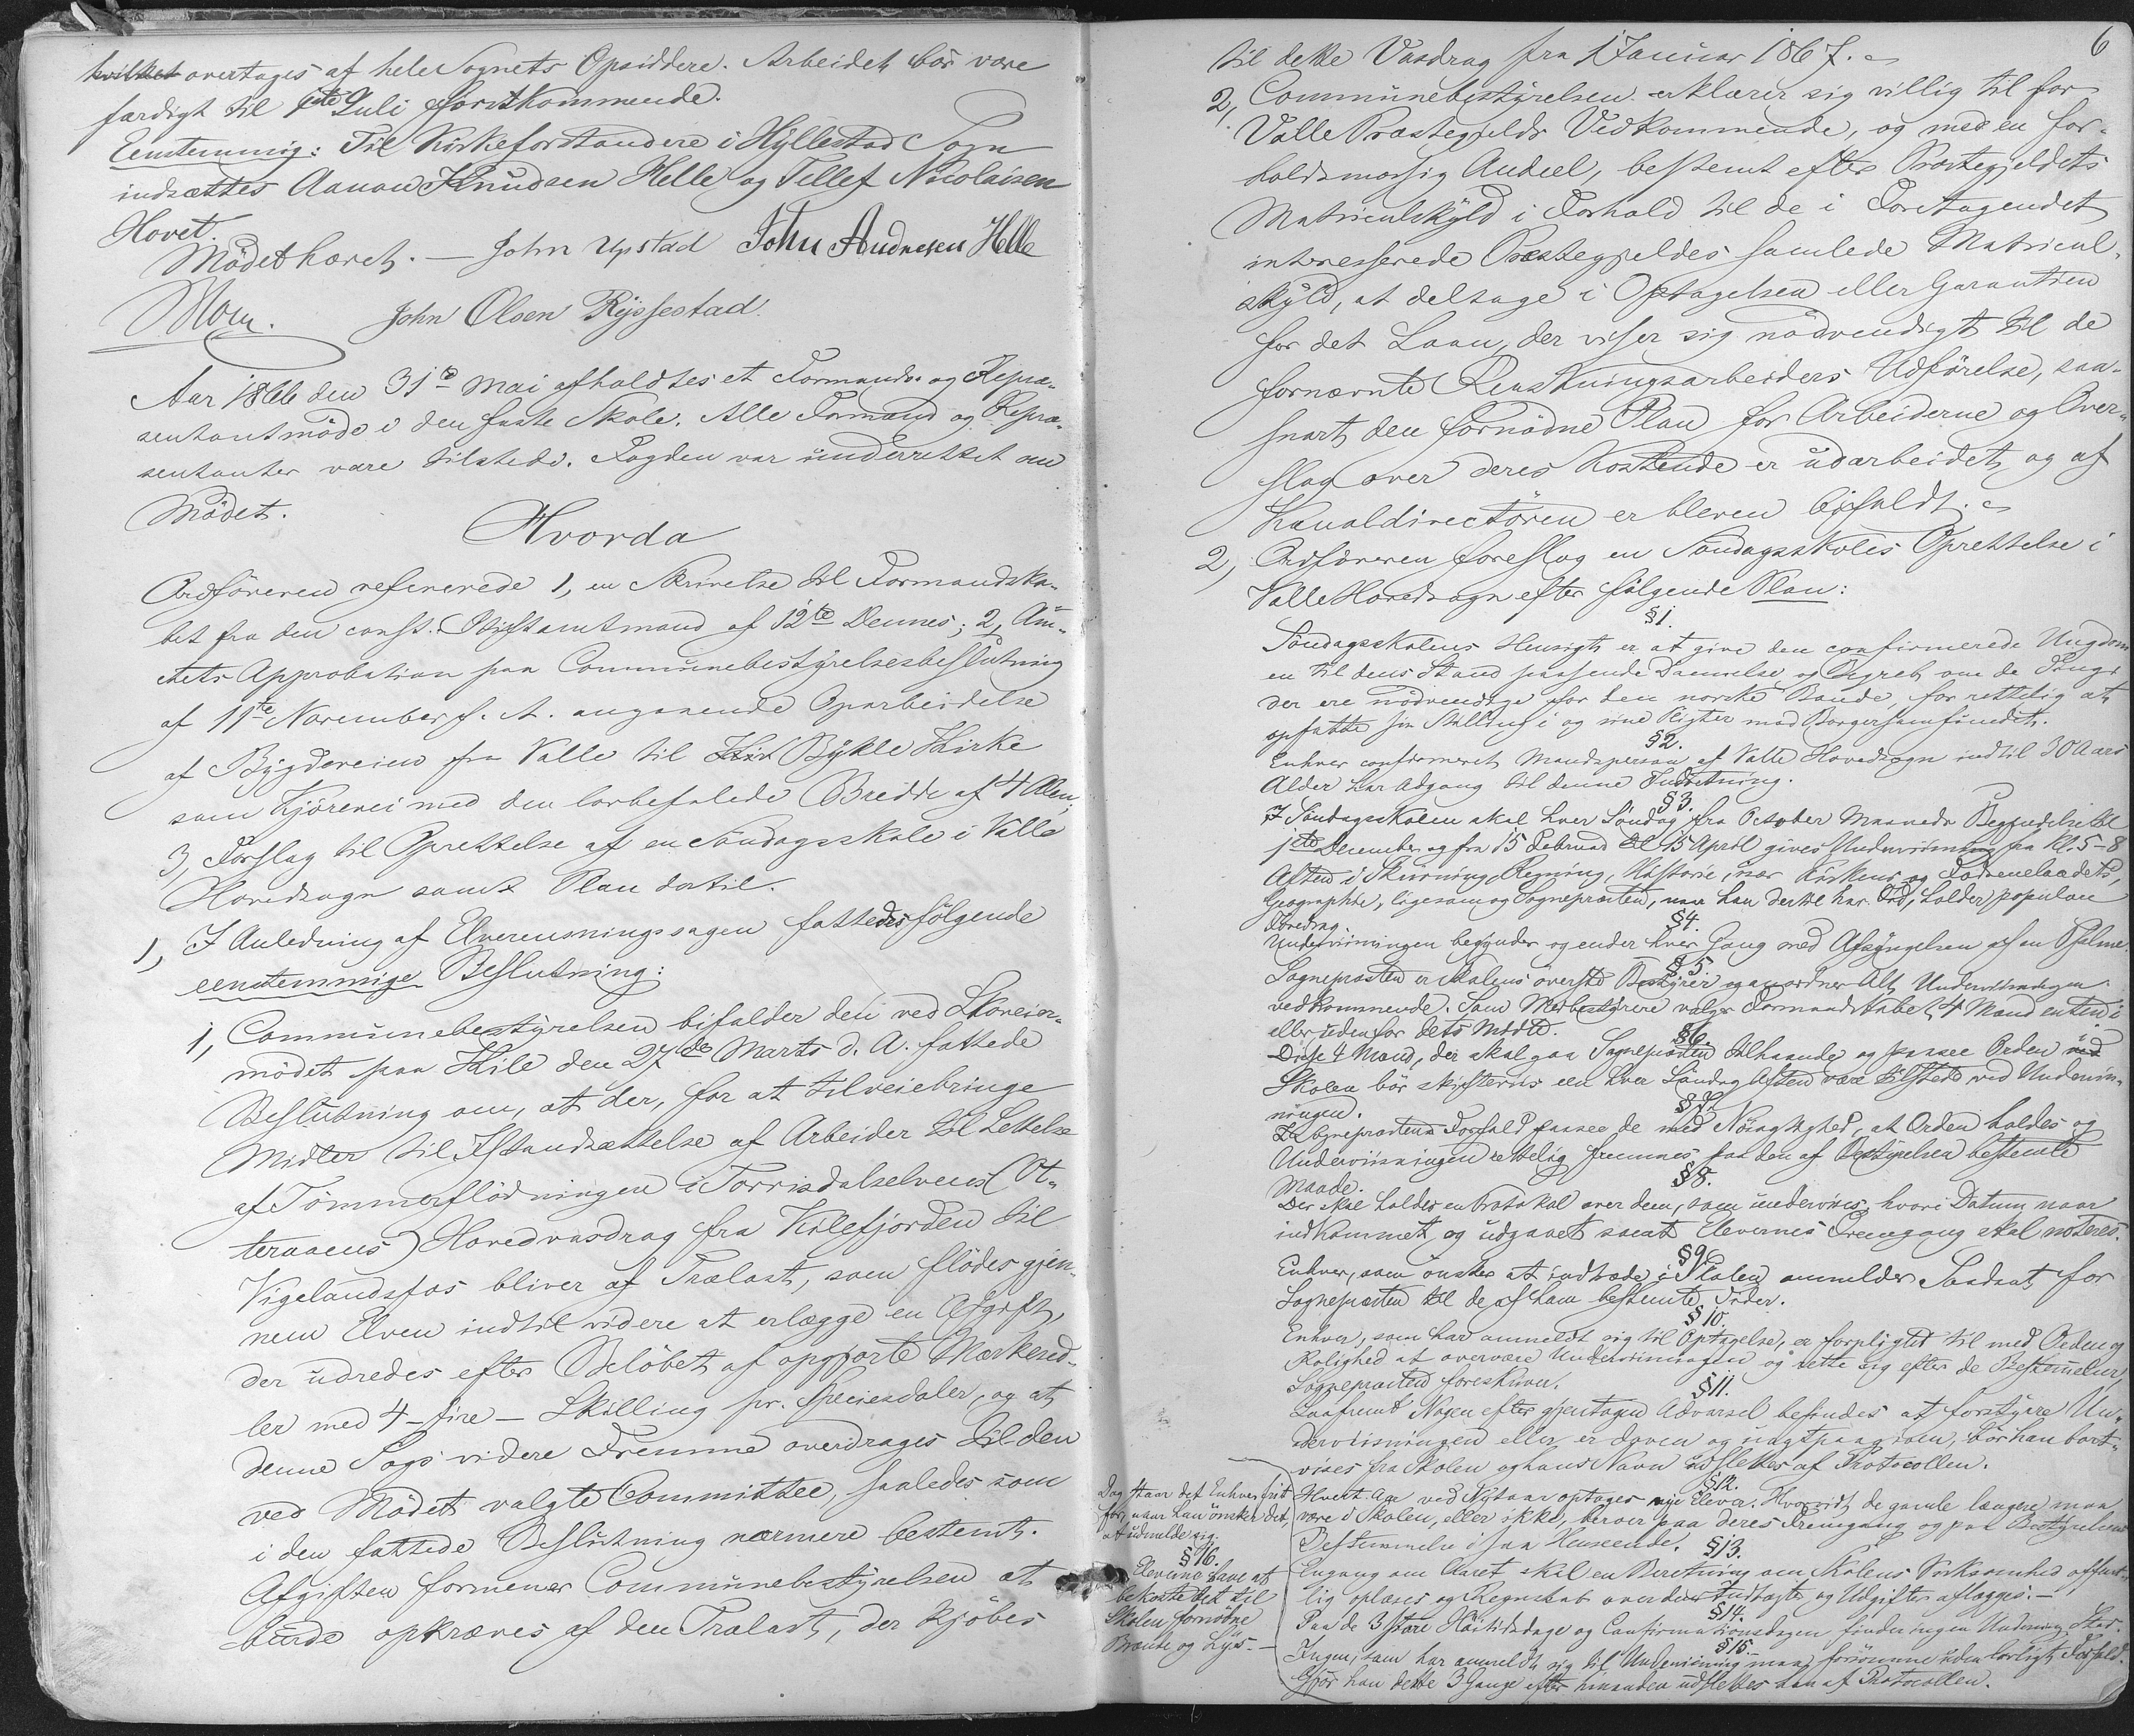 hvilket overtages af hele Sognets Opsiddere. Arbeidet bör være
færdigt til 1ste Juli förstkommende.
Eenstemmig: Til Kirkeforstandere i Hyllestad Sogn
indsættes Aanon Knudsen Helle og Tellef Nicolaisen
Hovet.
Mödet hævet. — John Upstad John Andresen Helle
John Olsen Ryssestad
Aar 1866 den 31te Mai afholdtes et Formands- og Repræ-
sentantmöde i den faste Skole. Alle Formænd og Repræ-
sentanter vare tilstede. Fogden var underrettet om
Mödet.
Hvorda
Ordföreren refererede 1, en Skrivelse til Formandska-
bet fra den const. Stiftamtmand af 12te Dennes; 2, Am-
tets Approbation paa Communebestyrelsesbeslutning
af 11te November f. A. angaaende Oparbeidelse
af Bygdeveien fra Valle til Bykle Kirke
som Kjörevei med den lovbefalede Bredde af 4 Alen;
3, Forslag til Oprettelse af en Söndagsskole i Valle
Hovedsogn samt Plan dertil.
1, I Anledning af Elverensningssagen fattedes fölgende
eenstemmige Beslutning:
1, Communebestyrelsen bifalder den ved Skoveier-
mödet paa Kile den 27de Marts d. A. fattede
Beslutning om, at der, for at tilveiebringe
Midler til Istandsættelse af Arbeider til Lettelse
af Tömmerflödningen i Torrisdalselvens (Ot-
teraaens) Hovedvasdrag fra Kilefjorden til
Vigelandsfos bliver af Trælast, som flödes gjen-
nem Elven indtil videre at erlægge en Afgift,
der udredes efter Belöbet af opgjorte Mærkesed-
ler med 4 - fire - Skilling pr. Speciesdaler, og at
denne Sags videre Fremme overdrages til den
ved Mödet valgte Committee, saaledes som
i den fattede Beslutning nærmere bestemt.
Afgiften formener Communebestyrelsen at
burde opkræves af den Trælast, der kjöbes
6
til dette Vasdrag fra 1 Januar 1867.
2, Communebestyrelsen erklærer sig villig til for
Valle Præstegjelds Vedkommende, og med en for-
holdsmæssig Andeel, bestemt efter Præstegjeldets
Matriculskyld i Forhold til de i Foretagendet
interesserede Præstegjeldes samlede Matricul-
skyld, at deltage i Optagelsen eller Garantien
for det Laan, der viser sig nödvendigt til de
fornævnte Rensningsarbeiders Udförelse, saa-
snart den fornödne Plan for Arbeiderne og Over-
slag over deres Kostende er udarbeidet og af
Kanaldirectören er bleven bifaldt.
2, Ordföreren foreslog en Söndagsskoles Oprettelse i
Valle Hovedsogn efter fölgende Plan:
§1.
Söndagsskolens Hensigt er at give den confirmerede Ungdom
en til dens Stand passende Dannelse og Begreb om de Ting,
der ere nödvendige for den norske Bonde, for rettelig at
opfatte sin Stilling i og sine Pligter mod Borgersamfundet.
§2.
Enhver confirmeret Mandsperson af Valle Hovedsogn indtil 30 Aars
Alder har Adgang til denne Indretning.
§3.
I Söndagsskolen skal hver Söndag fra October Maaneds Begyndelse til
1ste December og fra 15 Februar til 15 April gives Underviisning fra Kl. 5-8
Aften i Skrivning, Regning, Historie, især Kirkens og Fædrenelandets,
Geographie, ligesom og Sognepræsten, naar han dertil har Tid, holder populære
Foredrag.
§4.
Underviisningen begynder og ender hver Gang med Afsyngelsen af en Psalme.
§5.
Sognepræsten er Skolens överste Bestyrer og anordner Alt Underviisningen
vedkommende. Som Medbestyrere vælger Formandskabet 4 Mænd enten i
eller udenfor dets Midte.
§6.
Disse 4 Mænd, der skal gaa Sognepræsten tilhaande og paasee Orden i
Skolen bör skifteviis een hver Söndag Aften være tilstede ved Underviis-
ningen.
§7.
I Sognepræstens Forfald paasee de med Nöiagtighed, at Orden holdes og
Underviisningen rettelig fremmes paa den af Bestyrelsen bestemte
Maade.
§8.
Der skal holdes en Protokol over dem, som undervises, hvori Datum naar
indkommet og udgaaet samt Elevernes Fremgang skal noteres.
§9.
Enhver, som önsker at indtræde i Skolen anmelder Saadant for
Sognepræsten til de af ham bestemte Tider.
§10.
Enhver, som har anmeldt sig til Optagelse, er forpligtet til med Orden og
Rolighed at overvære Underviisningen og rette sig efter de Bestemmelser,
Sognepræsten foreskriver.
§11.
Saafremt Nogen efter gjentagen Advarsel befindes at forstyrre Un-
derviisningen eller er doven og uagtpaagiven, bör han bort-
vises fra Skolen og hans Navn udslettes af Protocollen.
§12.
Hvert Aar ved Nytaar optages nye Elever. Hvorvidt de gamle længere maa
være i Skolen, eller ikke, beroer paa deres Fremgang og paa Bestyrelsens
Bestemmelse i saa Henseende.
§13.
Engang om Aaret skal en Beretning om Skolens Virksomhed offent-
lig oplæses og Regnskab over dens Indtægter og Udgifter aflægges. —
§14.
Paa de 3 store Höitidsdage og Confirmationsdagen finder ingen Undervisning Sted.
§15.
Ingen, som har anmeldt sig til Underviisning maa forsömme uden lovligt Forfald.
Gjör han dette 3 Gange efter hinanden udslettes han af Protocollen.
Dog staar det Enhver frit
for, naar han önsker det,
at udmelde sig.
§16.
Eleverne have at
bekoste det til
Skolen fornödne
Brænde og Lys. —